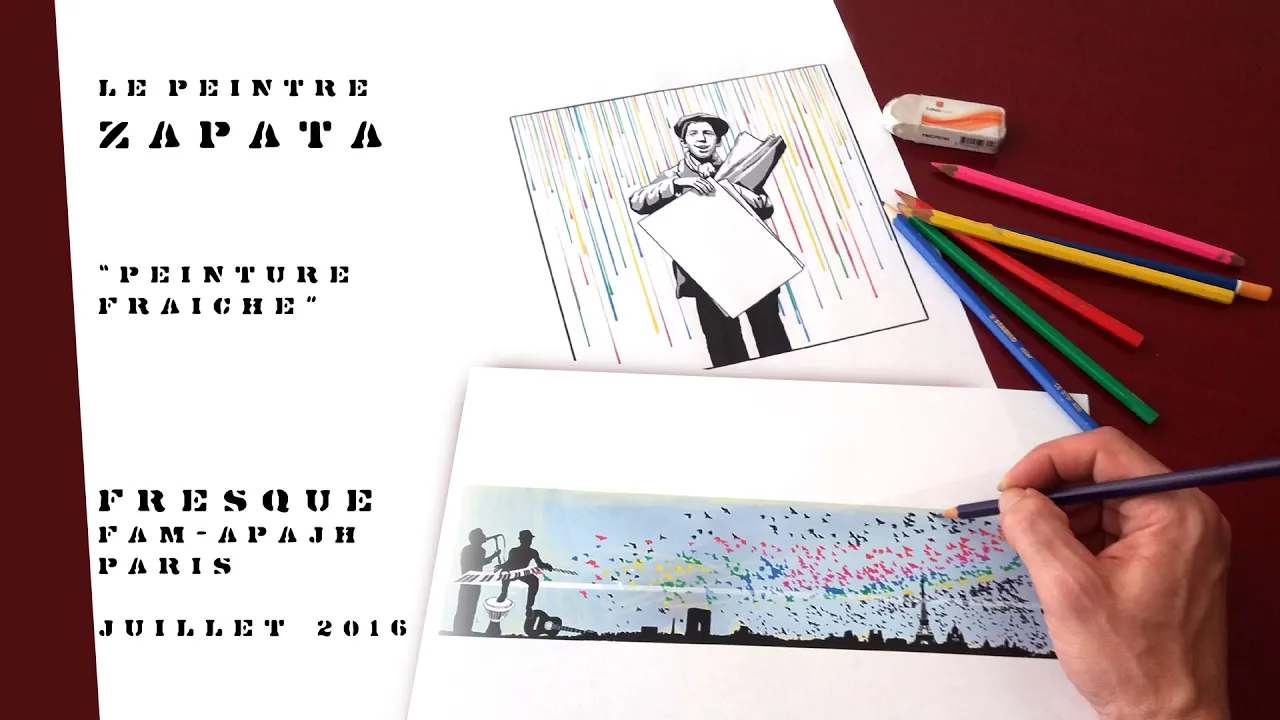 LE PEINTRE
ZAPATA
"PEINTURE
FRAICHE"
FRESQUE
FAM-APAJH
PARIS
JUILLET 2016